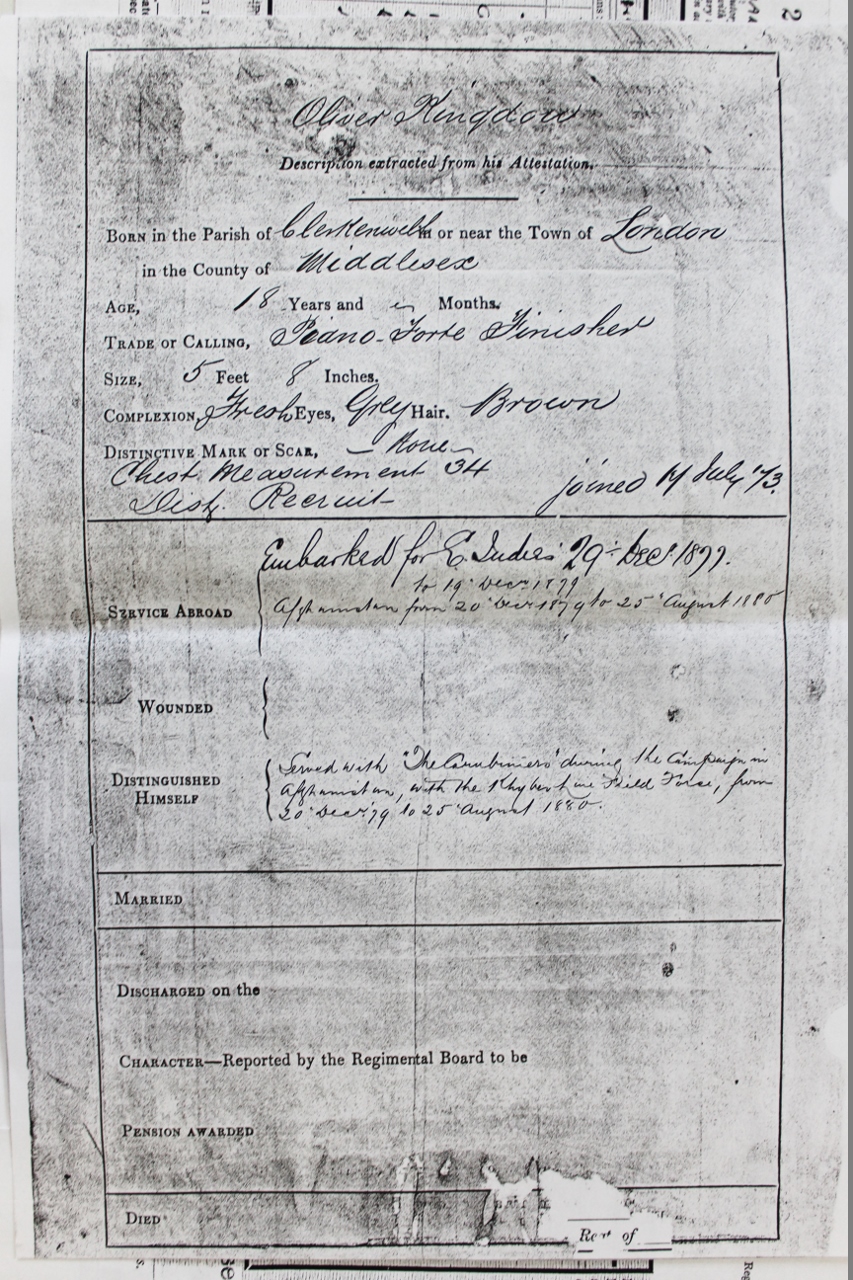 Oliver Kingdon
Description extracted from his Attestation.
BORN in the Parish of Clerkenwell in or near the Town of London
in the County of Middlesex
AGE, 18 Years and Months.
TRADE OR CALLING, Piano-Forte Finisher
SIZE, 5 Feet 8 Inches.
COMPLEXION, Fresh Eyes, Grey Hair. Brown
DISTINCTIVE MARK OR SCAR, — None —
Chest Measurement 34
joined 17 July '73.
Dist. Recruit
Embarked for E. Indies 29th Decr 1877.
to 19th Decr 1879
SERVICE ABROAD
Afghanistan from 20th Decr 1879 to 25th August 1880
WOUNDED
Served with "The Carabiniers" during the Campaign in
DISTINGUISHED HIMSELF
Afghanistan, with the Khyber Line Field Force, from
20th Decr '79 to 25th August 1880.
MARRIED
DISCHARGED on the
CHARACTER—Reported by the Regimental Board to be
PENSION AWARDED
DIED
of